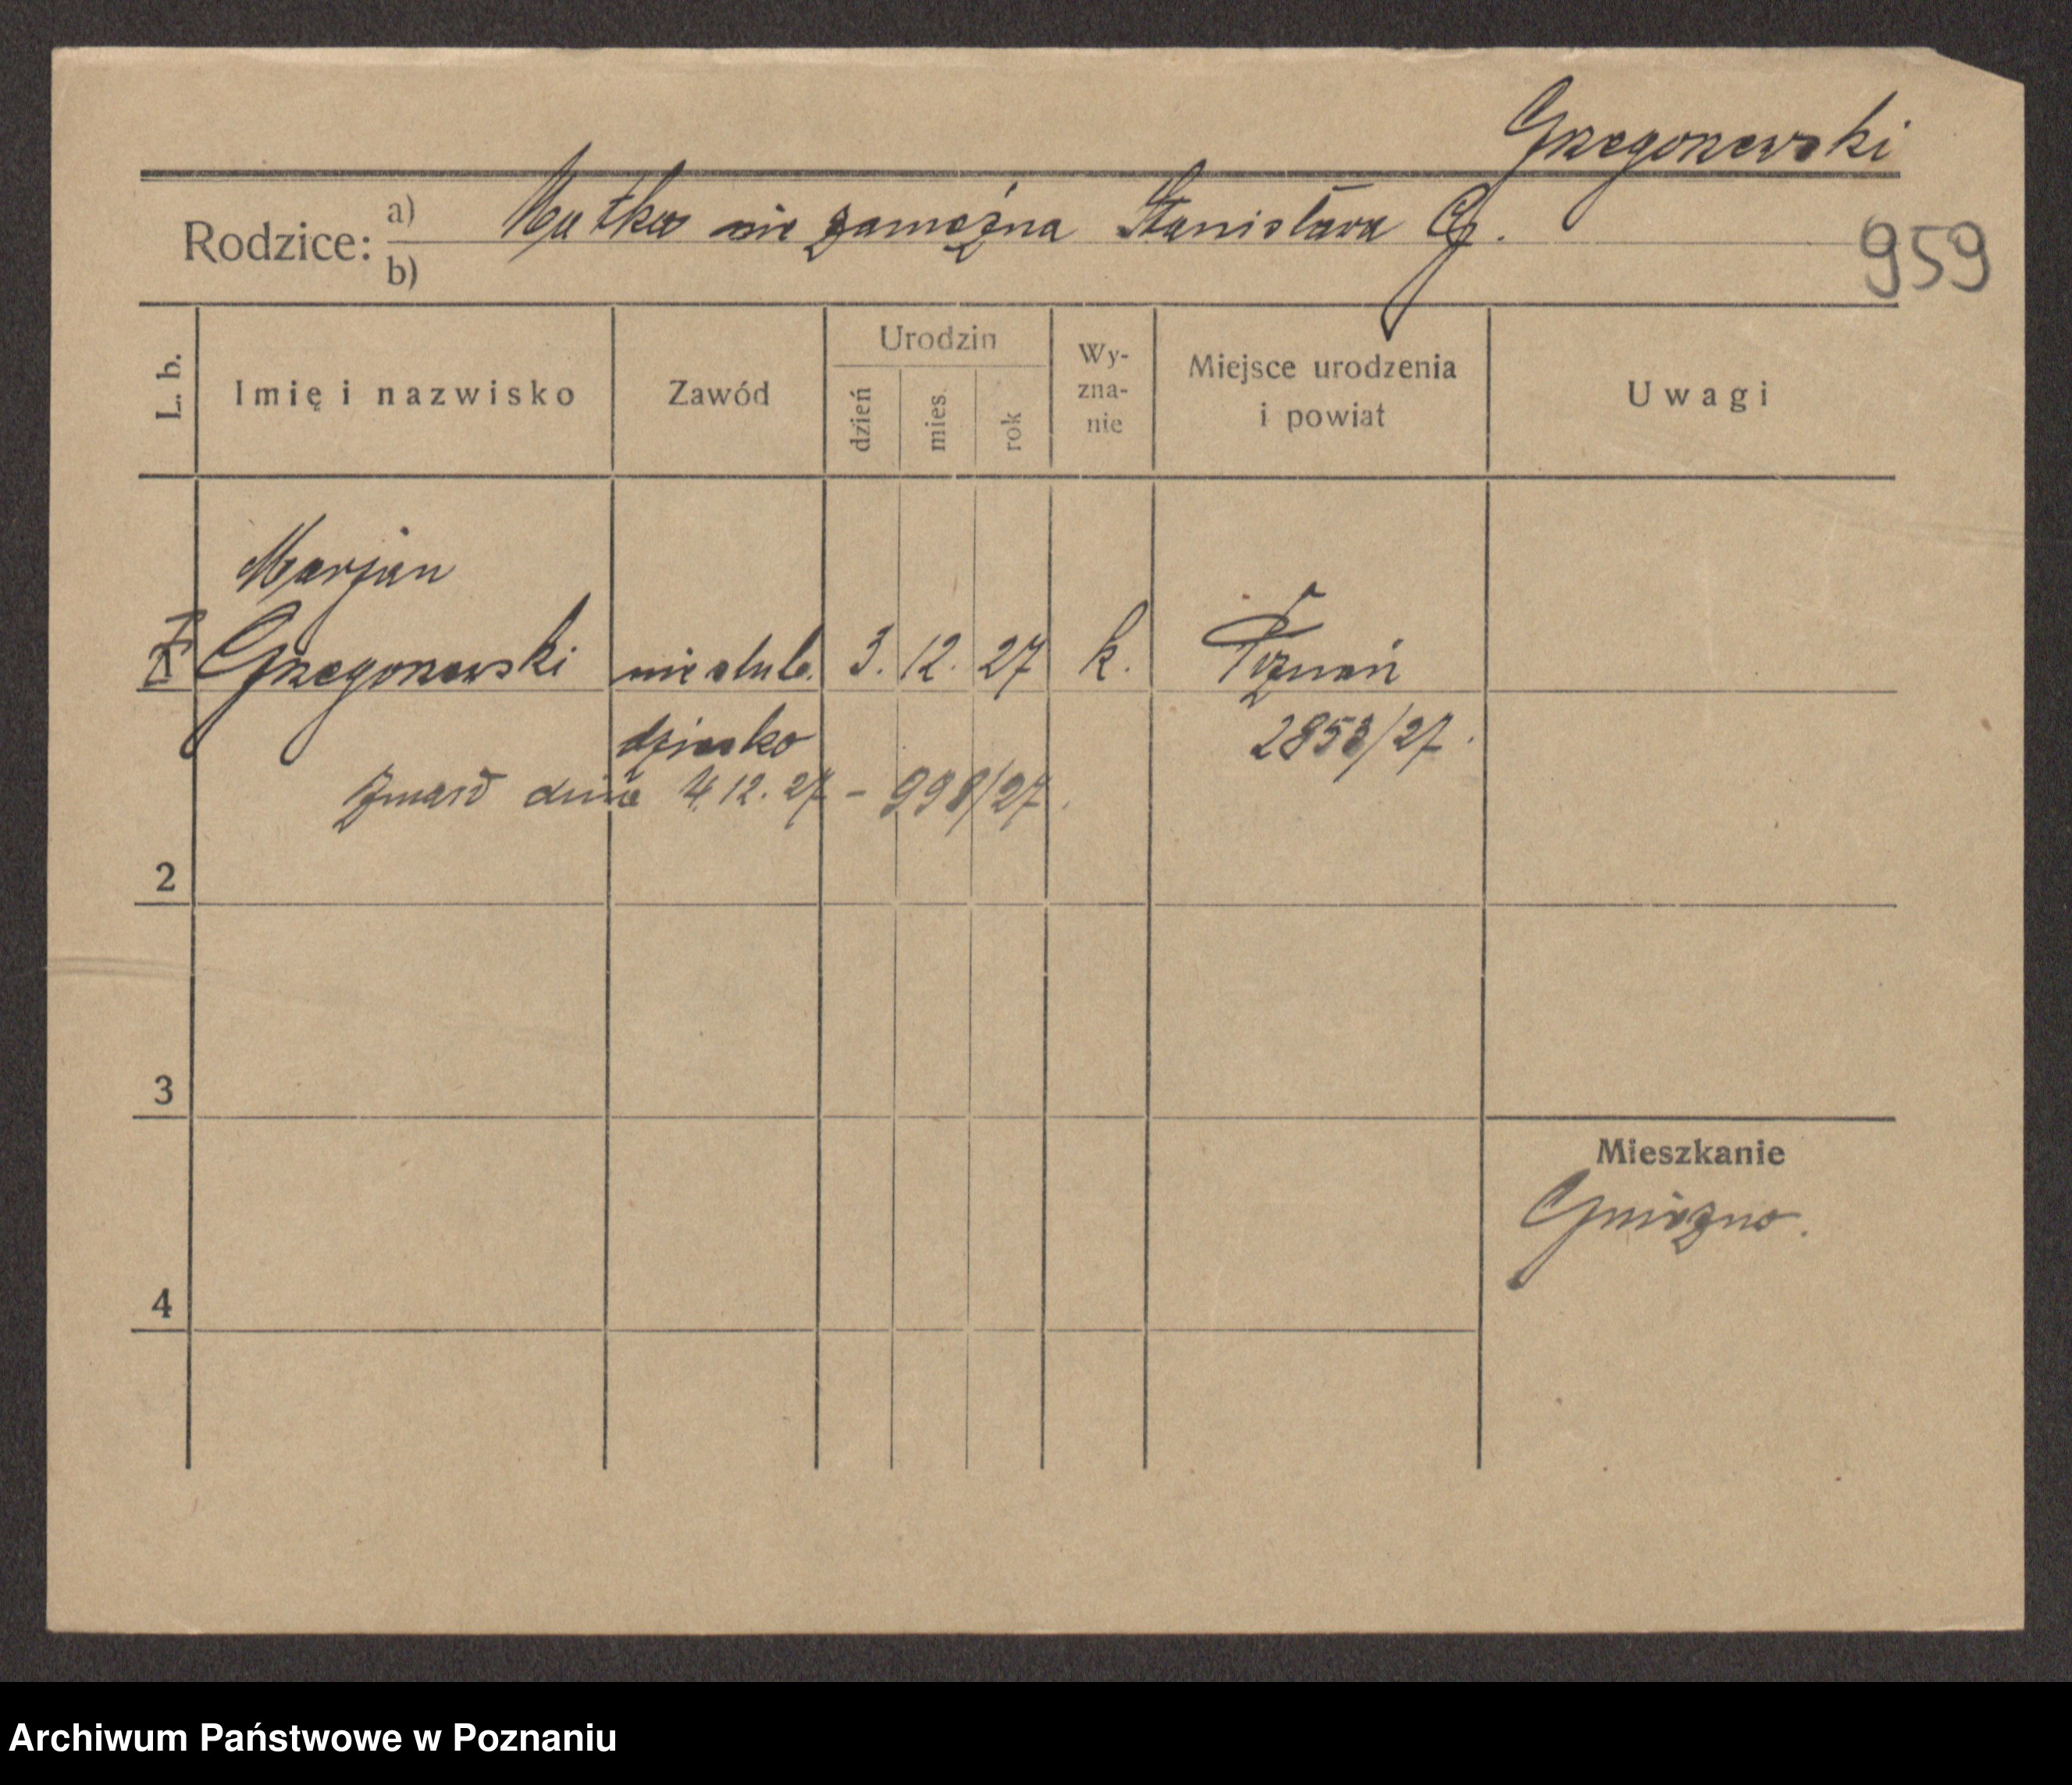 Grzegorzewski
Rodzice: a) Matka nie zamężna Stanisława G.
b)
959
L. b.
Imię i nazwisko
Zawód
Urodzin
dzień
mies.
rok
Wy-
zna-
nie
Miejsce urodzenia
i powiat
Uwagi
Marjan
1 Grzegorzewski nieślub. 3. 12. 27 k. Poznań
dziecko 2853/27.
Zmarł dnia 4.12.27 - 998/27.
2
3
Mieszkanie
Gniezno.
4
Archiwum Państwowe w Poznaniu